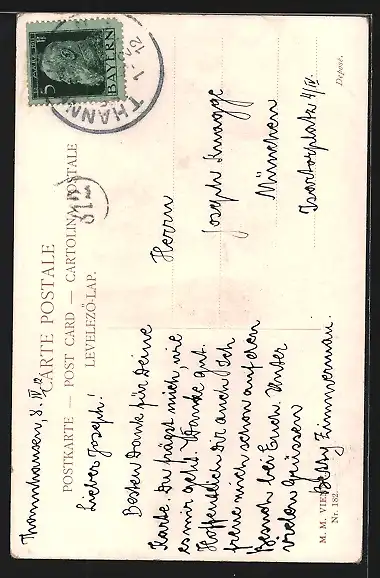 5
BAYERN
THANNH
CARTE POSTALE
POSTKARTE — POST CARD — CARTOLINA POSTALE
LEVELEZŐ-LAP.
Thannhausen, 8. IV. 12
Lieber Joseph!
Besten Dank für Deine
Karte. Du frägst mich, wie
es mir geht. Danke gut.
Hoffentlich Dir auch. Ich
freue mich schon auf den
Besuch bei Euch. Unter
vielen Grüssen
Betty Zimmermann.
Herrn
Joseph Knagge
München
Isartorplatz 4/IV.
Deposé.
M. M. VIENNE
Nr. 182.